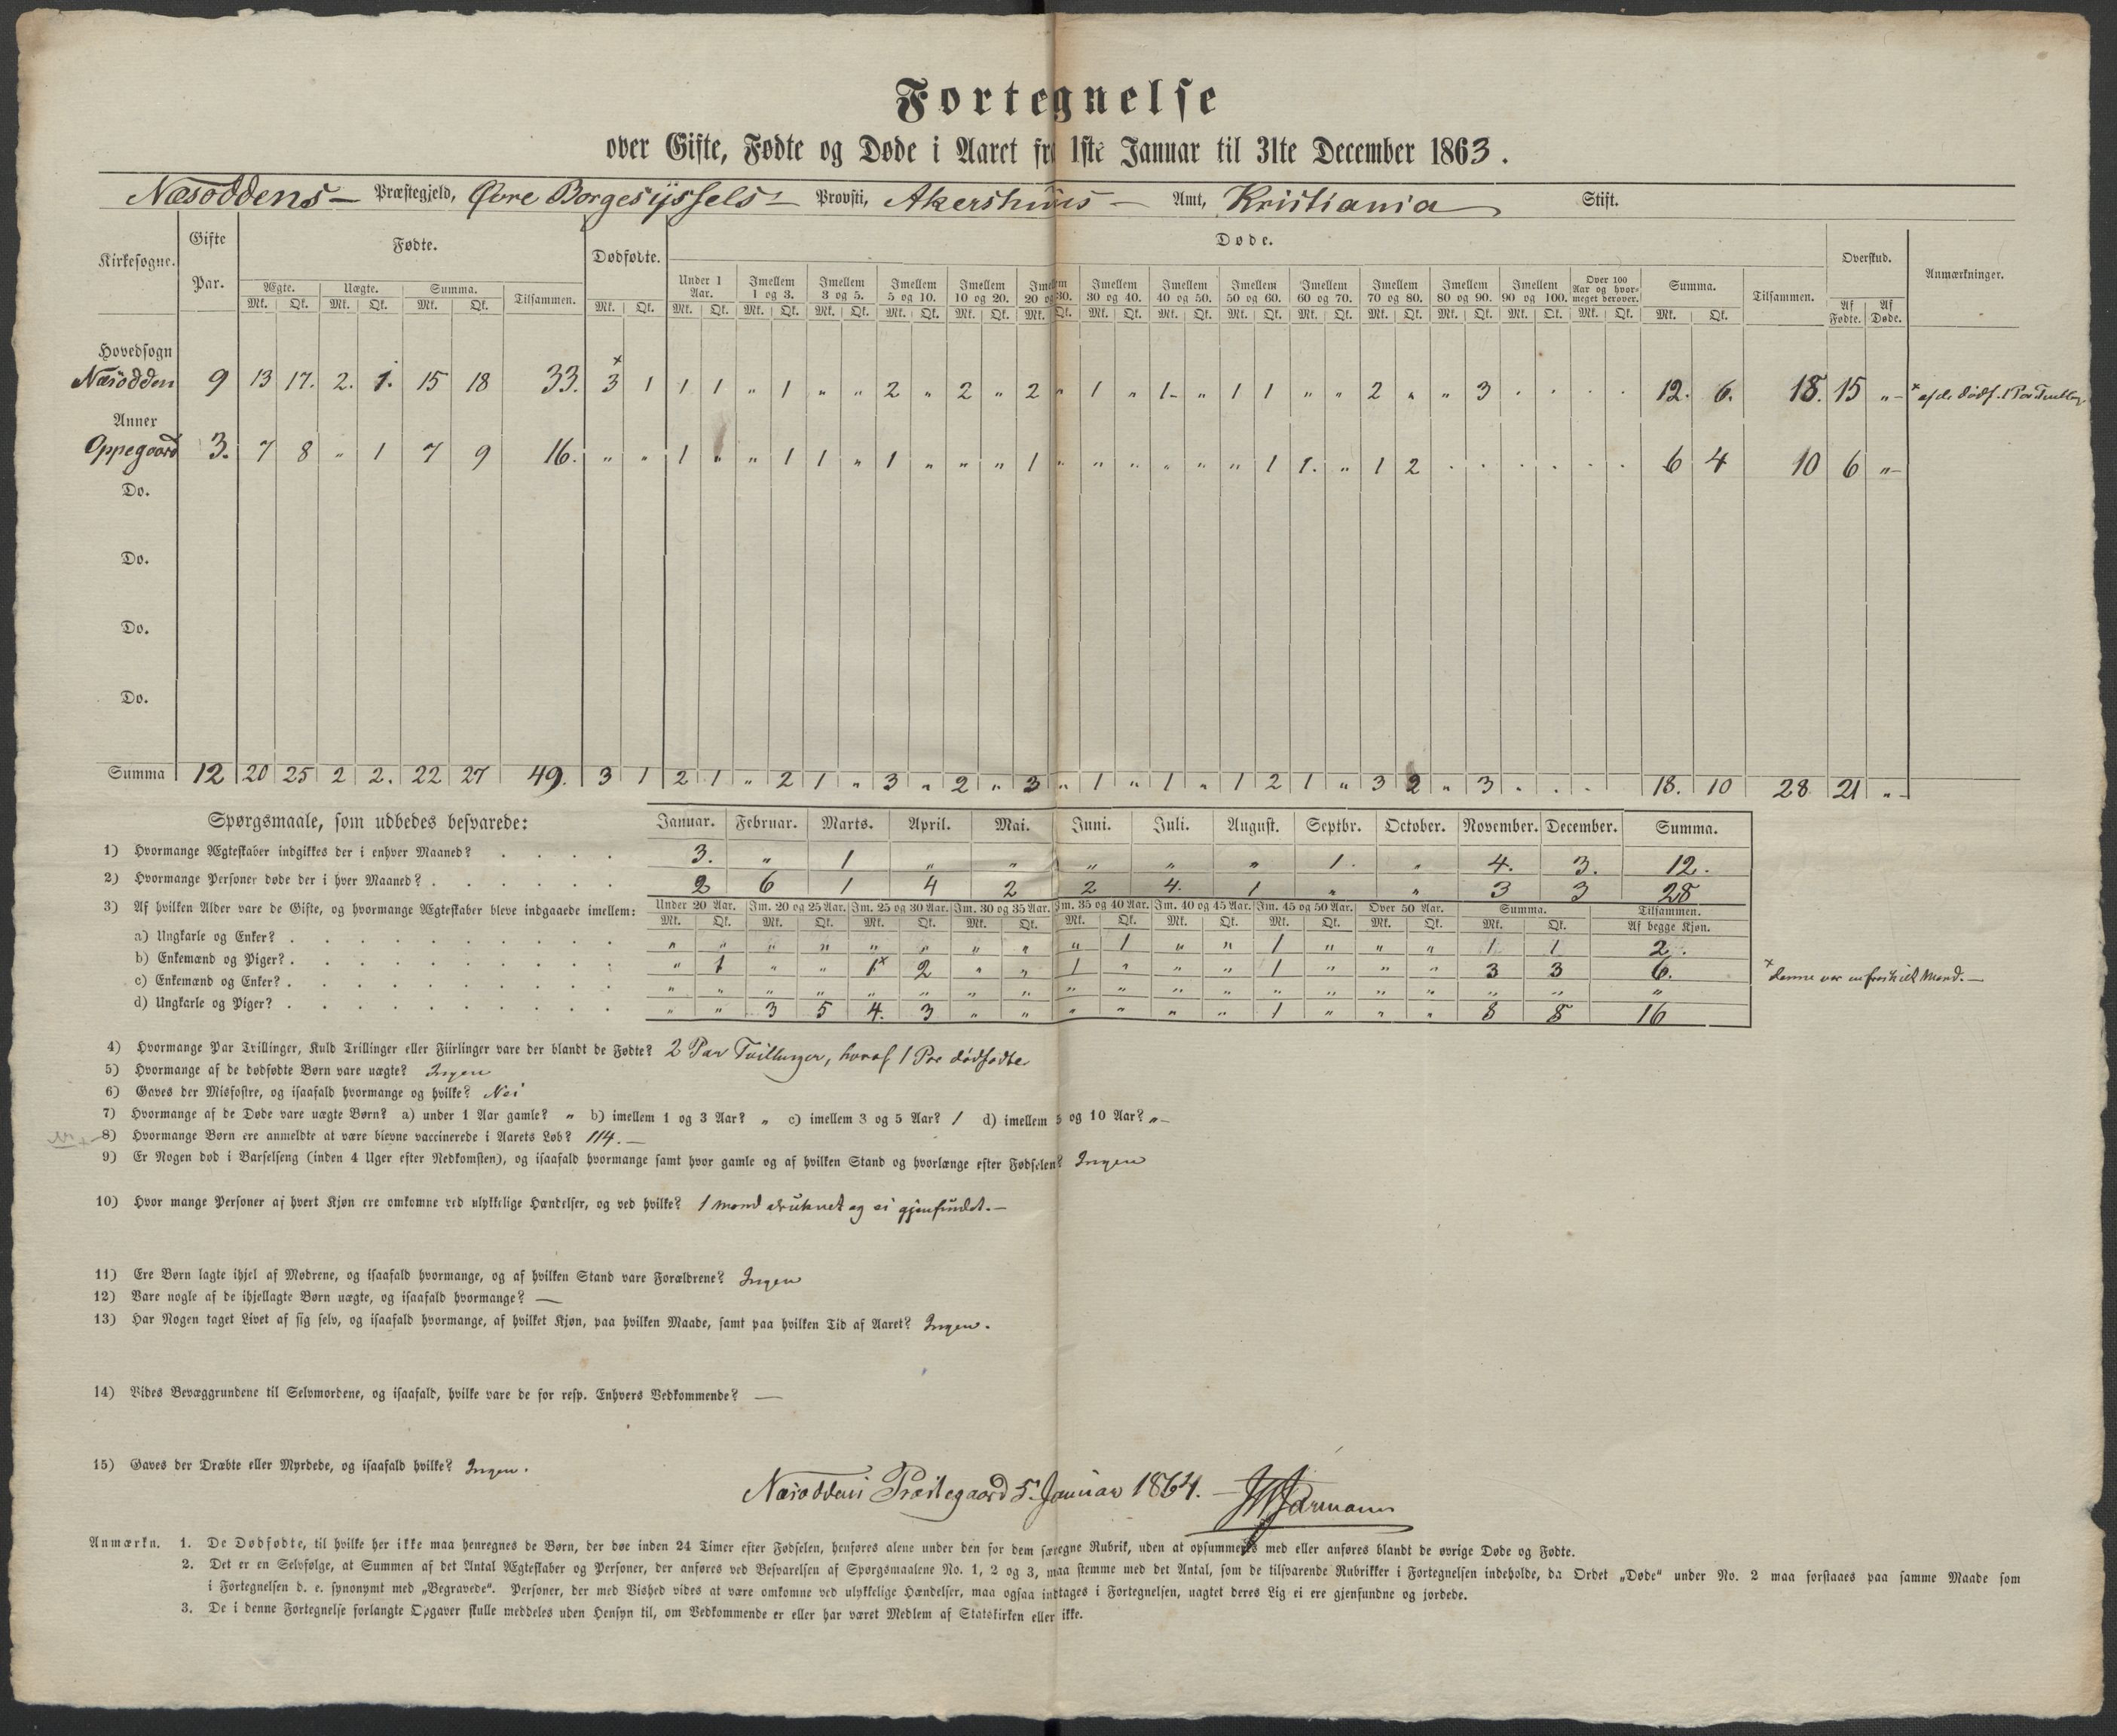 Fortegnelse
over Gifte, Fødte og Døde i Aaret fra 1ste Januar til 31te December 1863.
Næsoddens – Præstegjeld, Øvre Borgesyssels – Provsti, Akershuus – Amt, Kristiania Stift.
Kirkesogne. Gifte Par. Fødte. Dødfødte. Døde. Overskud. Anmærkninger.
Ægte. Uægte. Summa. Tilsammen. Under 1 Aar. Imellem 1 og 3. Imellem 3 og 5. Imellem 5 og 10. Imellem 10 og 20. Imellem 20 og 30. Imellem 30 og 40. Imellem 40 og 50. Imellem 50 og 60. Imellem 60 og 70. Imellem 70 og 80. Imellem 80 og 90. Imellem 90 og 100. Over 100 Aar og hvormeget derover. Summa. Tilsammen. Af Fødte. Af Døde.
Mk. Qk. Mk. Qk. Mk. Qk. Mk. Qk. Mk. Qk. Mk. Qk. Mk. Qk. Mk. Qk. Mk. Qk. Mk. Qk. Mk. Qk. Mk. Qk. Mk. Qk. Mk. Qk. Mk. Qk. Mk. Qk. Mk. Qk. Mk. Qk. Mk. Qk.
Hovedsogn
Næsodden 9 13 17. 2. 1. 15 18 33. × 3 1 1 1 " 1 " " 2 " 2 " 2 " 1 " 1 " 1 1 " " 2 " " 3 . . . . 12. 6. 18. 15 " × af de dødf. 1 Par
Anner
Oppegaard 3. 7 8 " 1 7 9 16. " " 1 " " 1 1 " 1 " " " 1 " " " " " " 1 1. " 1 2 . . . . . . 6 4 10 6 "
Do.
Do.
Do.
Do.
Summa 12 20 25 2 2. 22 27 49. 3 1 2 1 " 2 1 " 3 " 2 " 3 " 1 " 1 " 1 2 1 " 3 2 " 3 . . . 18. 10 28 21 "
Spørgsmaale, som udbedes besvarede: Januar. Februar. Marts. April. Mai. Juni. Juli. August. Septbr. October. November. December. Summa.
1) Hvormange Ægteskaber indgikkes der i enhver Maaned? 3. " 1 " " " " " 1. " 4. 3. 12.
2) Hvormange Personer døde der i hver Maaned? 2 6 1 4 2 2 4. 1 " " 3 3 28
3) Af hvilken Alder vare de Gifte, og hvormange Ægteskaber bleve indgaaede imellem: Under 20 Aar. Im. 20 og 25 Aar. Im. 25 og 30 Aar. Im. 30 og 35 Aar. Im. 35 og 40 Aar. Im. 40 og 45 Aar. Im. 45 og 50 Aar. Over 50 Aar. Summa. Tilsammen.
Mk. Qk. Mk. Qk. Mk. Qk. Mk. Qk. Mk. Qk. Mk. Qk. Mk. Qk. Mk. Qk. Mk. Qk. Af begge Kjøn.
a) Ungkarle og Enker? " " " " " " " " " 1 " " 1 " " " 1 1 2.
b) Enkemænd og Piger? " 1 " " 1× 2 " " 1 " " " 1 " " " 3 3 6. × denne var en fraskilt Mand. –
c) Enkemænd og Enker? " " " " " " " " " " " " " " " " " " "
d) Ungkarle og Piger? " " 3 5 4. 3 " " " " " " 1 " " " 8 8 16
4) Hvormange Par Tvillinger, Kuld Trillinger eller Fiirlinger vare der blandt de Fødte? 2 Par Tvillinger, hvoraf 1 Par dødfødte
5) Hvormange af de dødfødte Børn vare uægte? Ingen
6) Gaves der Misfostre, og isaafald hvormange og hvilke? Nei
7) Hvormange af de Døde vare uægte Børn? a) under 1 Aar gamle? " b) imellem 1 og 3 Aar? " c) imellem 3 og 5 Aar? 1 d) imellem 5 og 10 Aar? " –
8) Hvormange Børn ere anmeldte at være blevne vaccinerede i Aarets Løb? 114. –
9) Er Nogen død i Barselseng (inden 4 Uger efter Nedkomsten), og isaafald hvormange samt hvor gamle og af hvilken Stand og hvorlænge efter Fødselen? Ingen
10) Hvor mange Personer af hvert Kjøn ere omkomne ved ulykkelige Hændelser, og ved hvilke? 1 Mand druknet og ei gjenfundet. –
11) Ere Børn lagte ihjel af Mødrene, og isaafald hvormange, og af hvilken Stand vare Forældrene? Ingen
12) Vare nogle af de ihjellagte Børn uægte, og isaafald hvormange? –
13) Har Nogen taget Livet af sig selv, og isaafald hvormange, af hvilket Kjøn, paa hvilken Maade, samt paa hvilken Tid af Aaret? Ingen.
14) Vides Bevæggrundene til Selvmordene, og isaafald, hvilke vare de for resp. Enhvers Vedkommende? –
15) Gaves der Dræbte eller Myrdede, og isaafald hvilke? Ingen.
Næsoddens Præstegaard 5. Januar 1864. –
Anmærkn. 1. De Dødfødte, til hvilke her ikke maa henregnes de Børn, der døe inden 24 Timer efter Fødselen, henføres alene under den for dem særegne Rubrik, uden at opsummeres med eller anføres blandt de øvrige Døde og Fødte.
2. Det er en Selvfølge, at Summen af det Antal Ægteskaber og Personer, der anføres ved Besvarelsen af Spørgsmaalene No. 1, 2 og 3, maa stemme med det Antal, som de tilsvarende Rubrikker i Fortegnelsen indeholde, da Ordet „Døde“ under No. 2 maa forstaaes paa samme Maade som
i Fortegnelsen d. e. synonymt med „Begravede“. Personer, der med Vished vides at være omkomne ved ulykkelige Hændelser, maa ogsaa indtages i Fortegnelsen, uagtet deres Lig ei ere gjenfundne og jordede.
3. De i denne Fortegnelse forlangte Opgaver skulle meddeles uden Hensyn til, om Vedkommende er eller har været Medlem af Statskirken eller ikke.